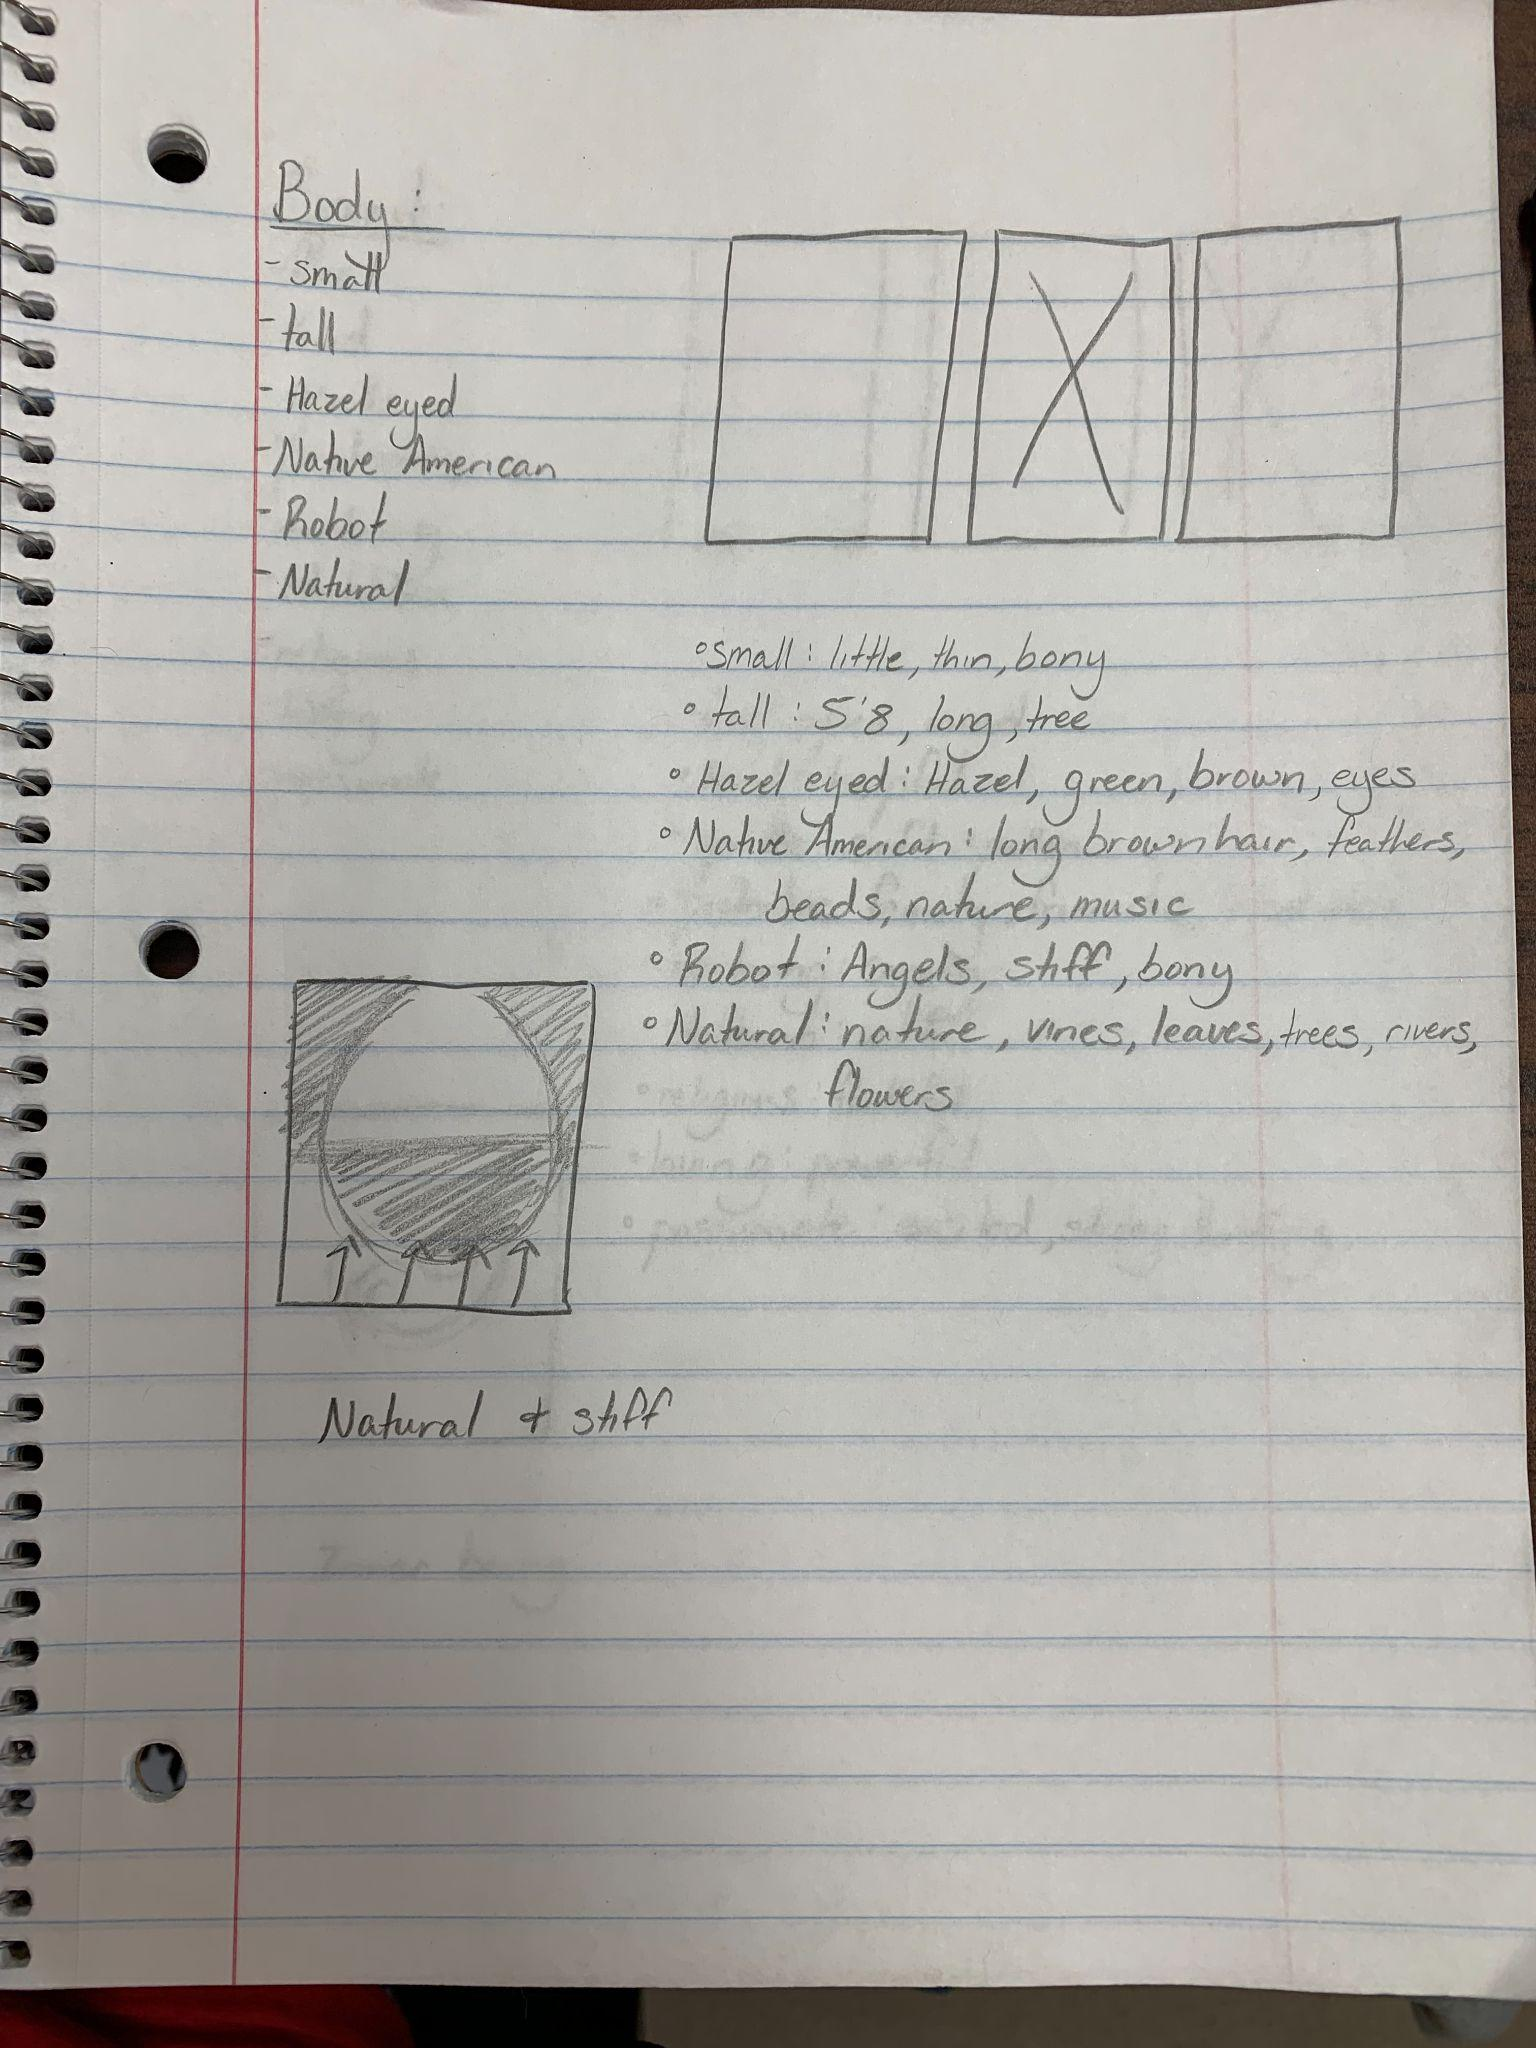 Body:
- small
- tall
- Hazel eyed
- Native American
- Robot
- Natural
° small: little, thin, bony
° tall: 5'8, long, tree
° Hazel eyed: Hazel, green, brown, eyes
° Native American: long brown hair, feathers,
beads, nature, music
° Robot: Angels, stiff, bony
° Natural: nature, vines, leaves, trees, rivers,
flowers
Natural + stiff